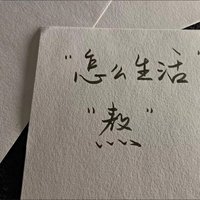 "怎么生活"
"熬"